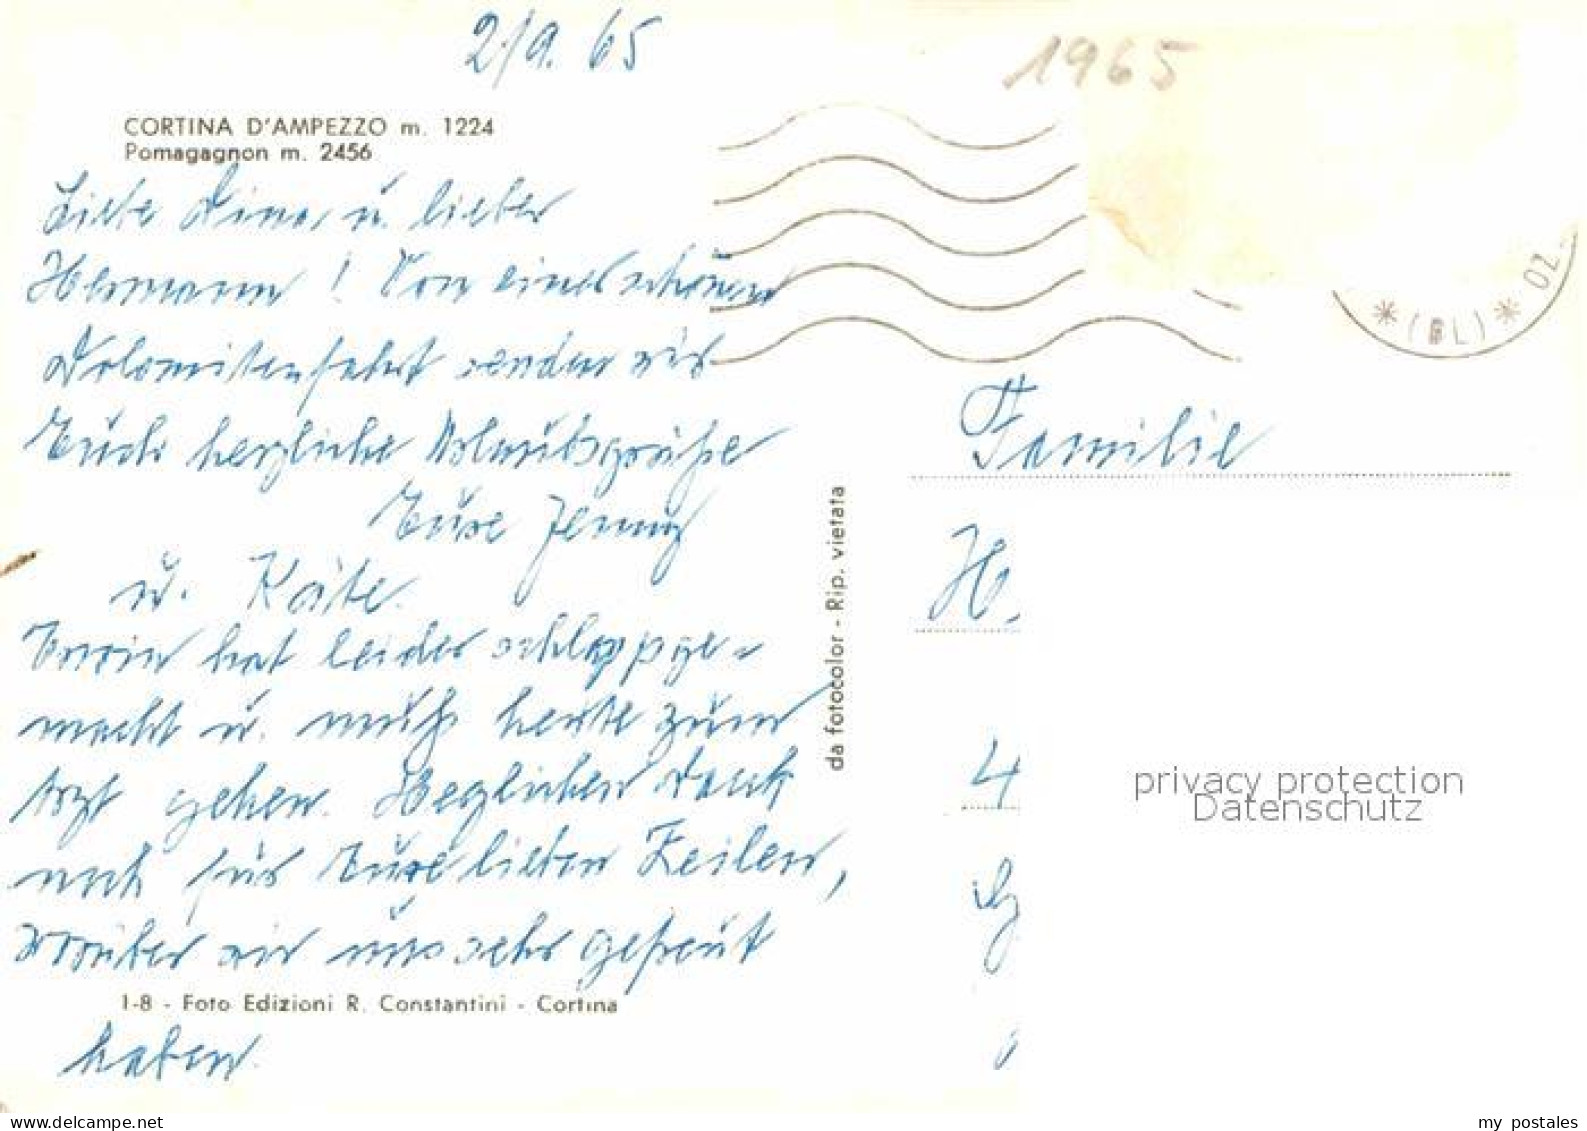 2/9. 65
1965
CORTINA D'AMPEZZO m. 1224
Pomagagnon m. 2456
Liebe Dina, u. lieber
Hermann! Von einer schönen
Dolomitenfahrt senden wir
Euch herzliche Urlaubsgrüße
Eure Jenny
u. Käte.
Erwin hat leider schlappge-
macht u. muß heute zum
Arzt gehen. Herzlichen Dank
noch für Eure lieben Zeilen,
worüber wir uns sehr gefreut
haben.
1-8 - Foto Edizioni R. Constantini - Cortina
da fotocolor - Rip. vietata
* (BL) * OZ
Familie
H.
4
privacy protection
Datenschutz
my postales